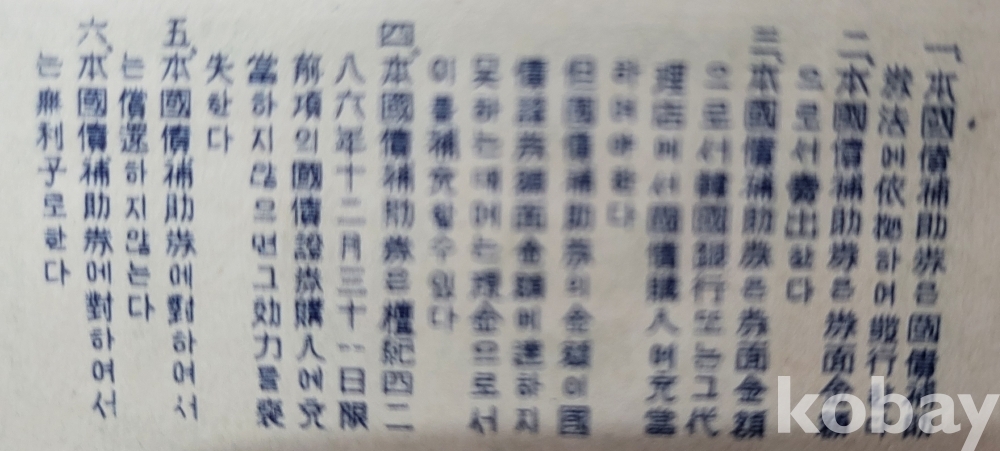 一、本國債補助券은國債補助
券法에依據하여發行한다
二、本國債補助券은券面金額
으로서賣出한다
三、本國債補助券은券面金額
으로서韓國銀行또는그代
理店에서國債購入에充當
하여야한다
但國債補助券의金額이國
債證券額面金額에達하지
못하는때에는現金으로서
이를補充할수있다
四、本國債補助券은檀紀四二
八六年十二月三十一日限
前項의國債證券購入에充
當하지않으면그効力를喪
失한다
五、本國債補助券에對하여서
는償還하지않는다
六、本國債補助券에對하여서
는無利子로한다
kobay